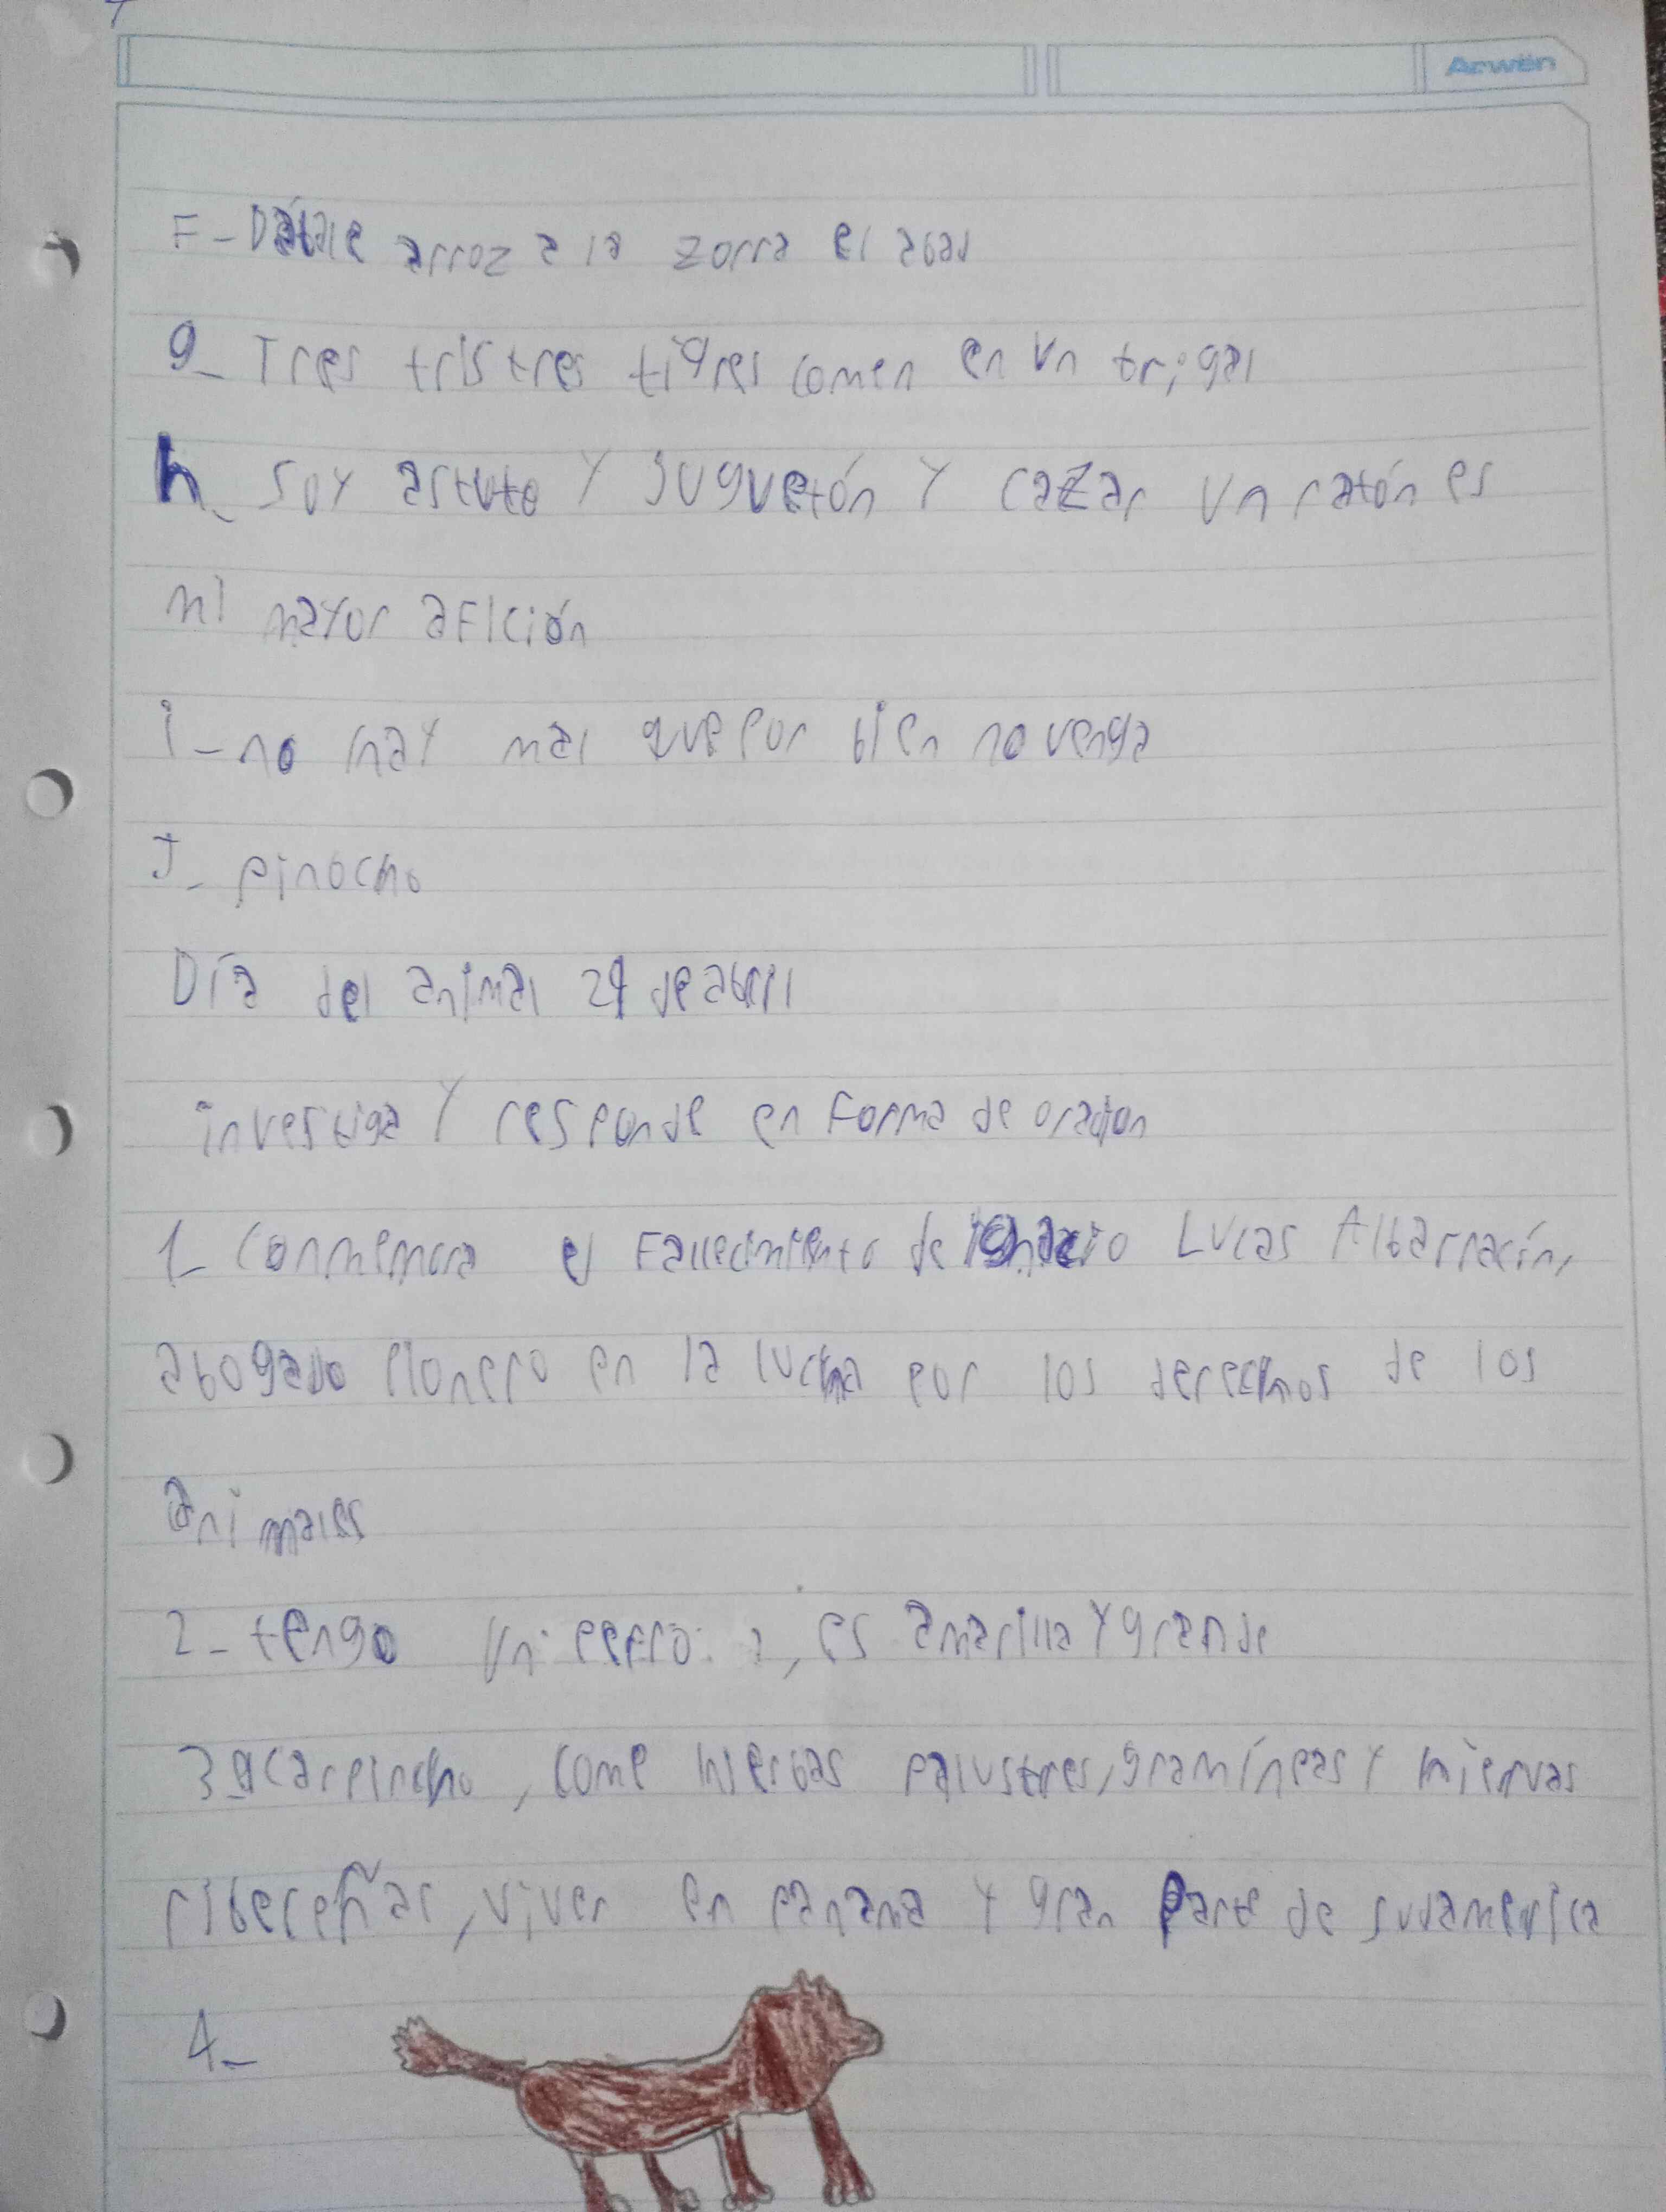 Arwen
F- Dábale arroz a la zorra el abad
g- Tres tristres tigres comen en un trigal
h- Soy astuto y juguetón y cazar un ratón es
mi mayor afición
i- no hay mal que por bien no venga
J- pinocho
Día del animal 29 de abril
investiga y responde en forma de oracion
1- Conmemora el Fallecimiento de ignacio Lucas Albarracín,
abogado pionero en la lucha por los derechos de los
animales
2- tengo un perro, es amarilla y grande
3- carpincho, come hierbas palustres, gramíneas y hiervas
ribereñas, viven en panama y gran Parte de sudamerica
4-